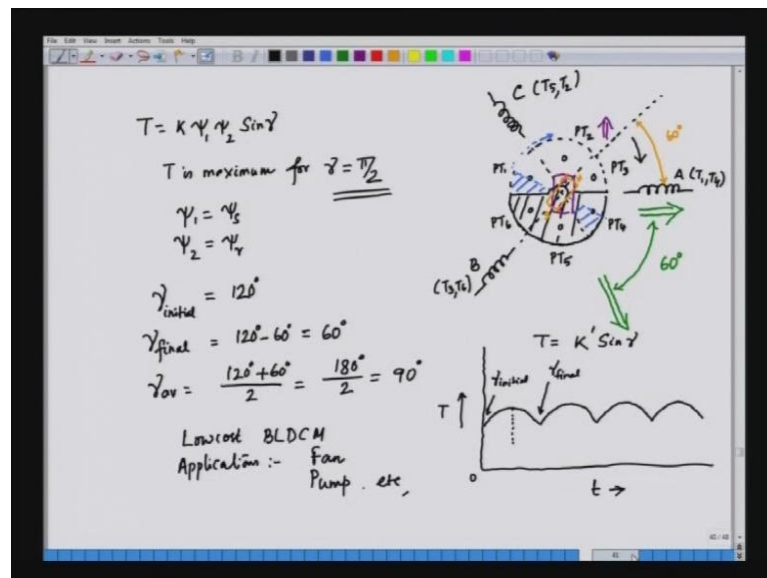 File Edit View Insert Actions Tools Help
T = K Ψ₁ Ψ₂ Sin γ
T is maximum for γ = π/2
Ψ₁ = Ψs
Ψ₂ = Ψr
γinitial = 120°
γfinal = 120° - 60° = 60°
γav = 120° + 60° / 2 = 180° / 2 = 90°
Lowcost BLDCM
Application :- Fan
Pump . etc,
C (T5, T2)
60°
PT2
PT1
PT3
A (T1, T4)
PT6
PT4
PT5
B
(T3, T6)
60°
T = K' Sin γ
γinitial
γfinal
T
0
t →
41